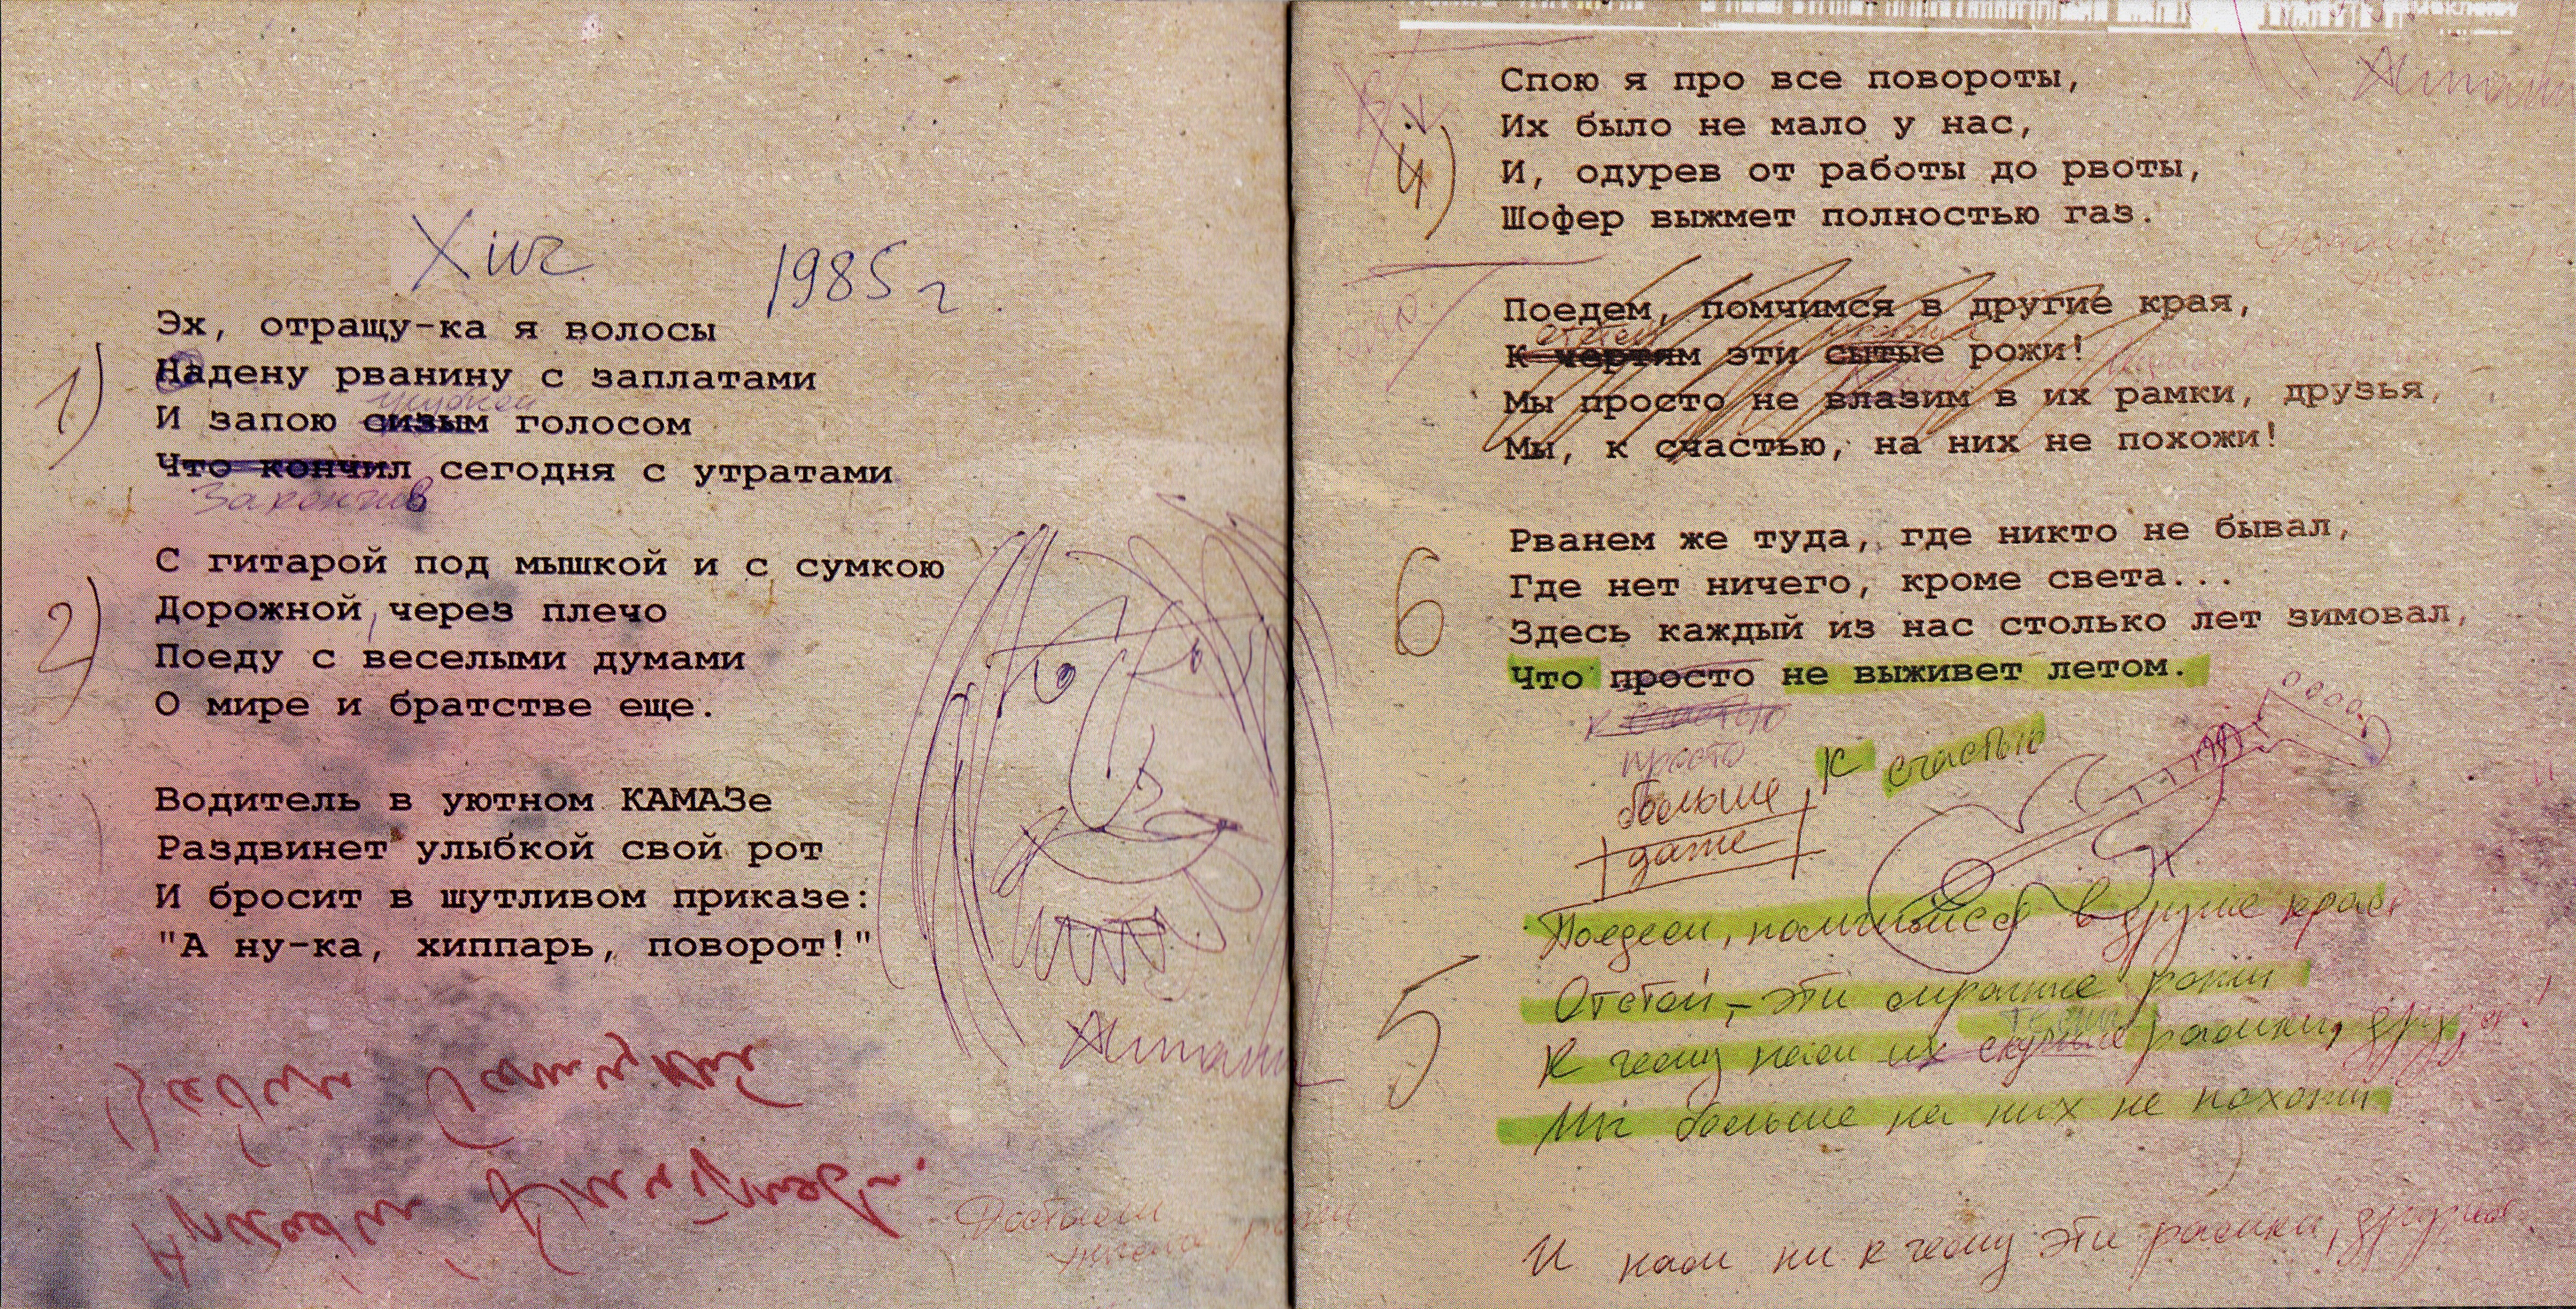 Хит 1985 г.
1)
Эх, отращу-ка я волосы
Надену рванину с заплатами
И запою сизым голосом
Что кончил сегодня с утратами
Закончив
2)
С гитарой под мышкой и с сумкою
Дорожной, через плечо
Поеду с веселыми думами
О мире и братстве еще.
Водитель в уютном КАМАЗе
Раздвинет улыбкой свой рот
И бросит в шутливом приказе:
"А ну-ка, хиппарь, поворот!"
4)
Спою я про все повороты,
Их было не мало у нас,
И, одурев от работы до рвоты,
Шофер выжмет полностью газ.
Поедем, помчимся в другие края,
К чертям эти сытые рожи!
Мы просто не влазим в их рамки, друзья,
Мы, к счастью, на них не похожи!
6
Рванем же туда, где никто не бывал,
Где нет ничего, кроме света...
Здесь каждый из нас столько лет зимовал,
Что просто не выживет летом.
к счастью
просто
больше к счастью
даже
5
Поедем, помчимся в другие края,
Отстой, – эти мрачные рожи
К чему нам их скучные рамки, друзья!
Мы больше на них не похожи
И нам ни к чему эти рамки, друзья